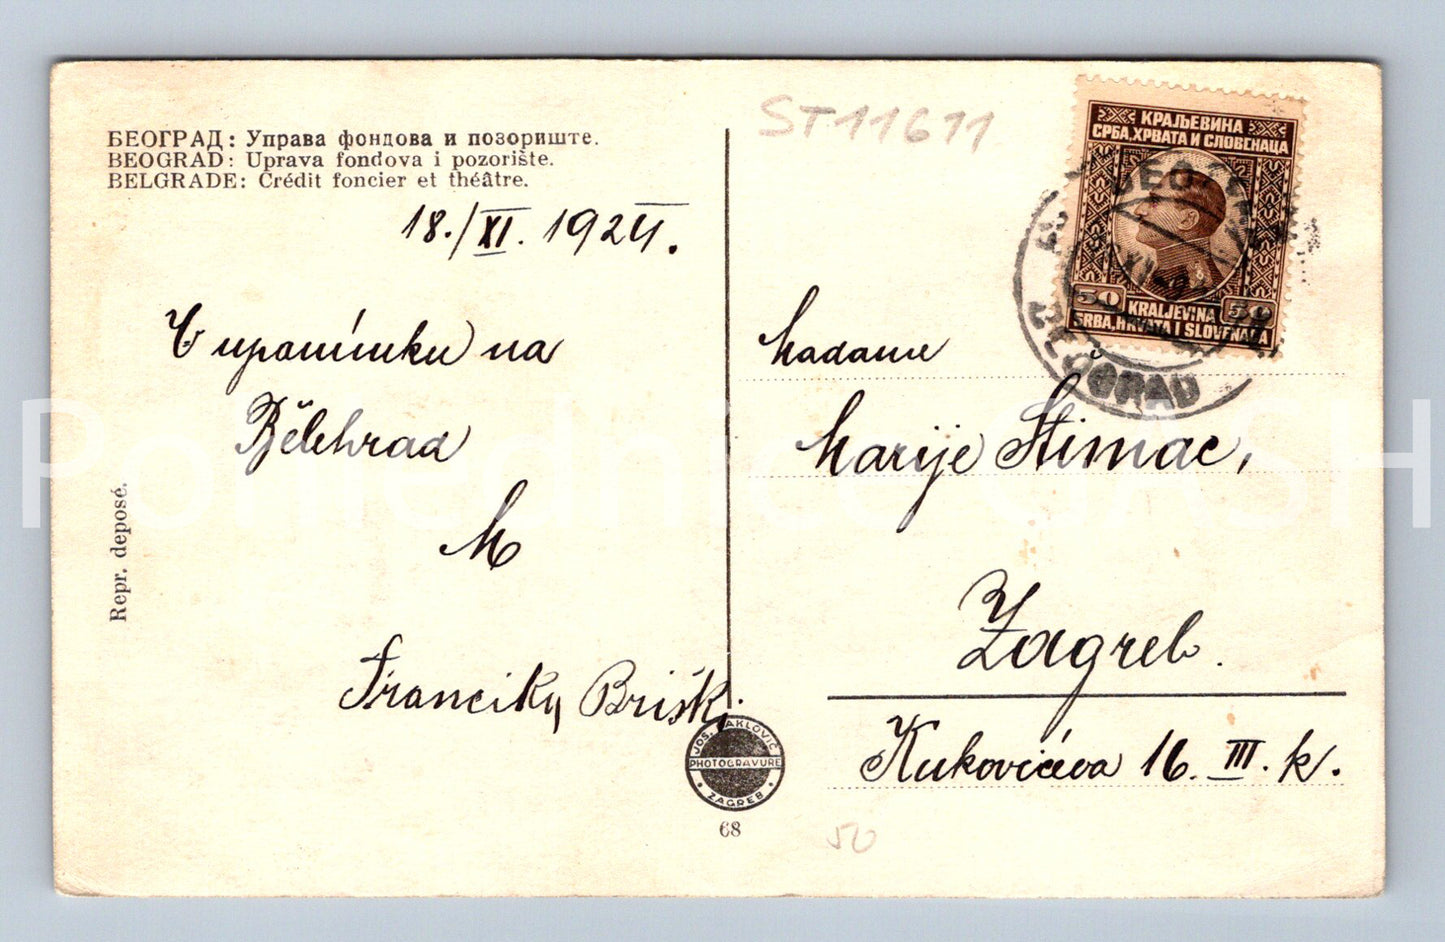 БЕОГРАД: Управа фондова и позориште.
BEOGRAD: Uprava fondova i pozorište.
BELGRADE: Crédit foncier et théâtre.
18./XI. 1924.
na
Bělehrad
M
Franciky Briški
Repr. deposé.
ST11611
КРАЉЕВИНА
СРБА, ХРВАТА И СЛОВЕНАЦА
50
50
KRALJEVINA
SRBA, HRVATA I SLOVENACA
BEOGRAD
Madame
Marije Štimac,
Zagreb.
Kukovićeva 16. III. k.
JOS. ČAKLOVIĆ
PHOTOGRAVURE
ZAGREB
68
50